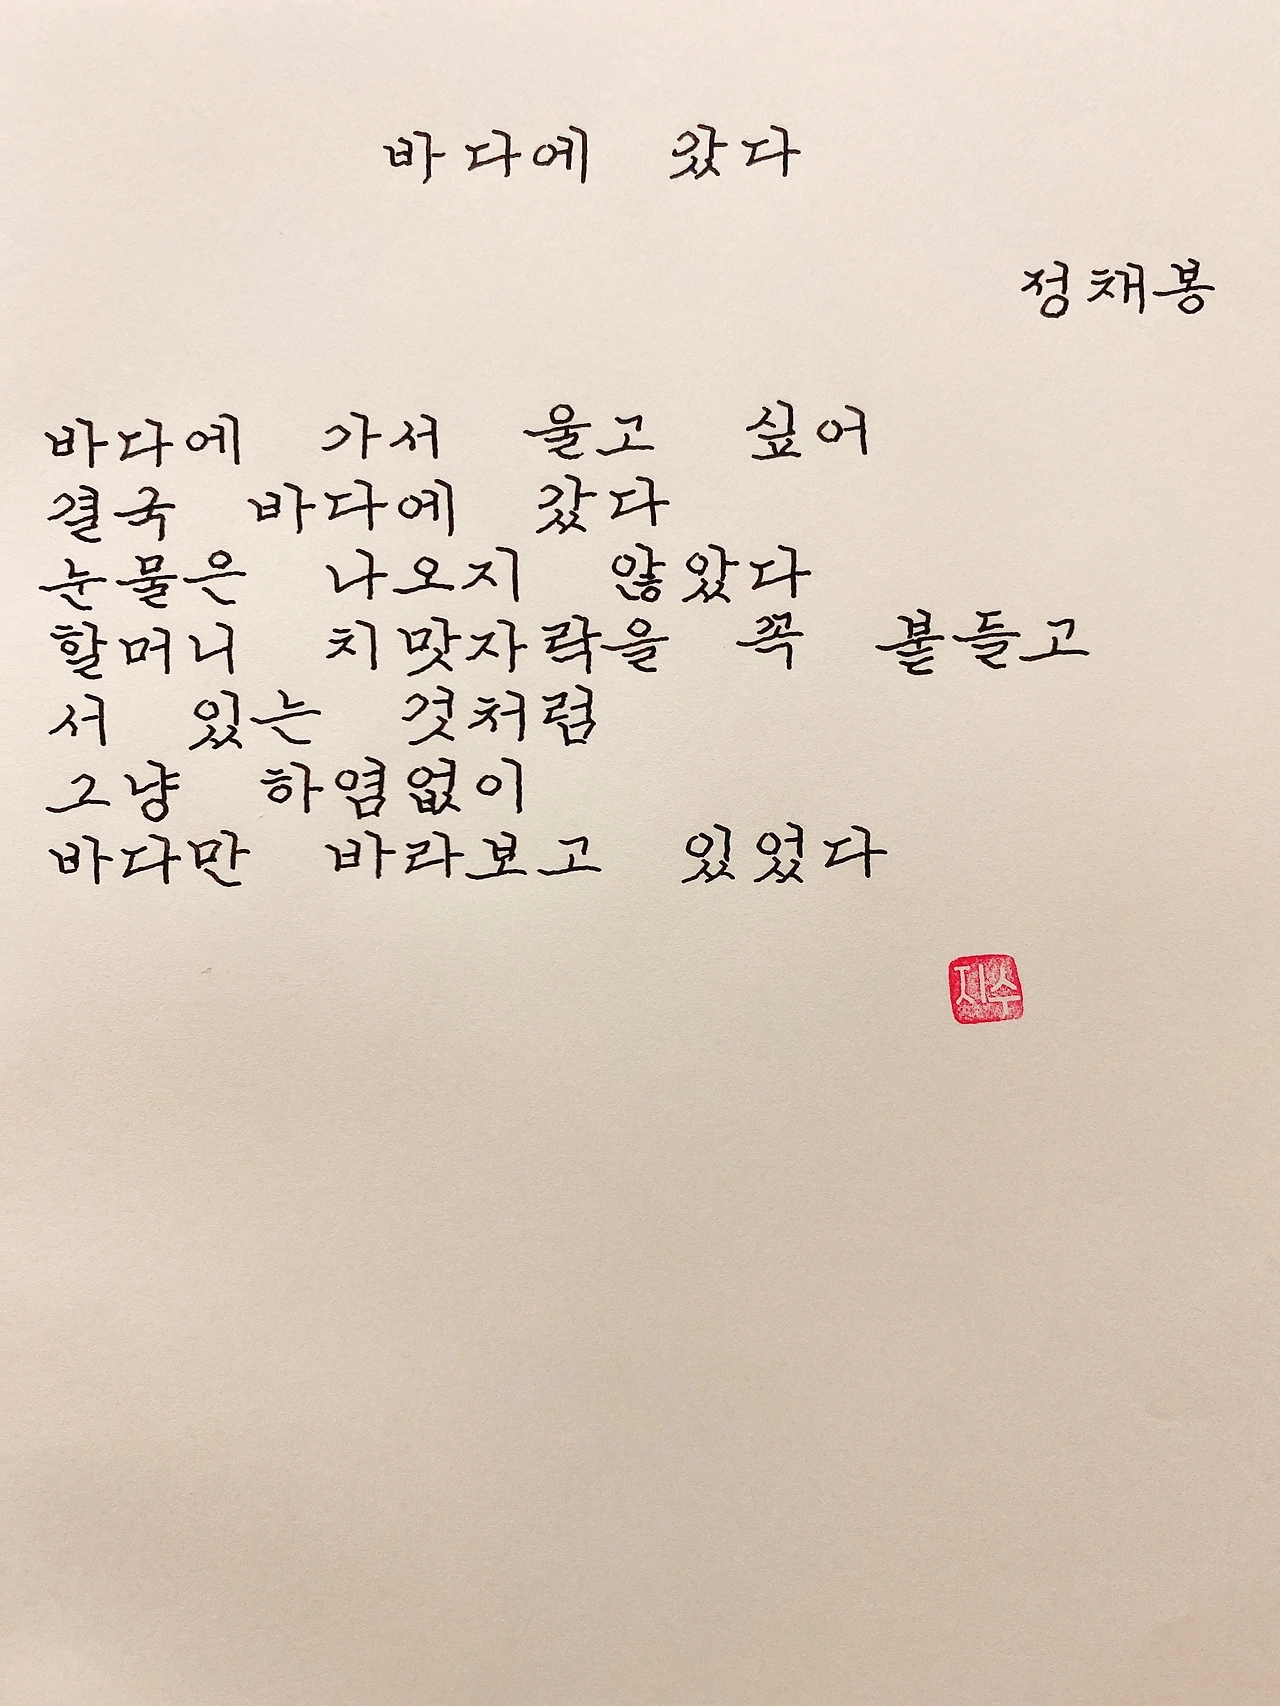 바다에 갔다
정채봉
바다에 가서 울고 싶어
결국 바다에 갔다
눈물은 나오지 않았다
할머니 치맛자락을 꼭 붙들고
서 있는 것처럼
그냥 하염없이
바다만 바라보고 있었다
지수